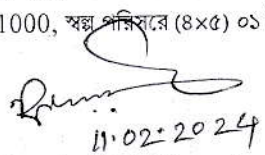 1000, স্বল্প পরিসরে (৪×৫) ০১
11.02.2024